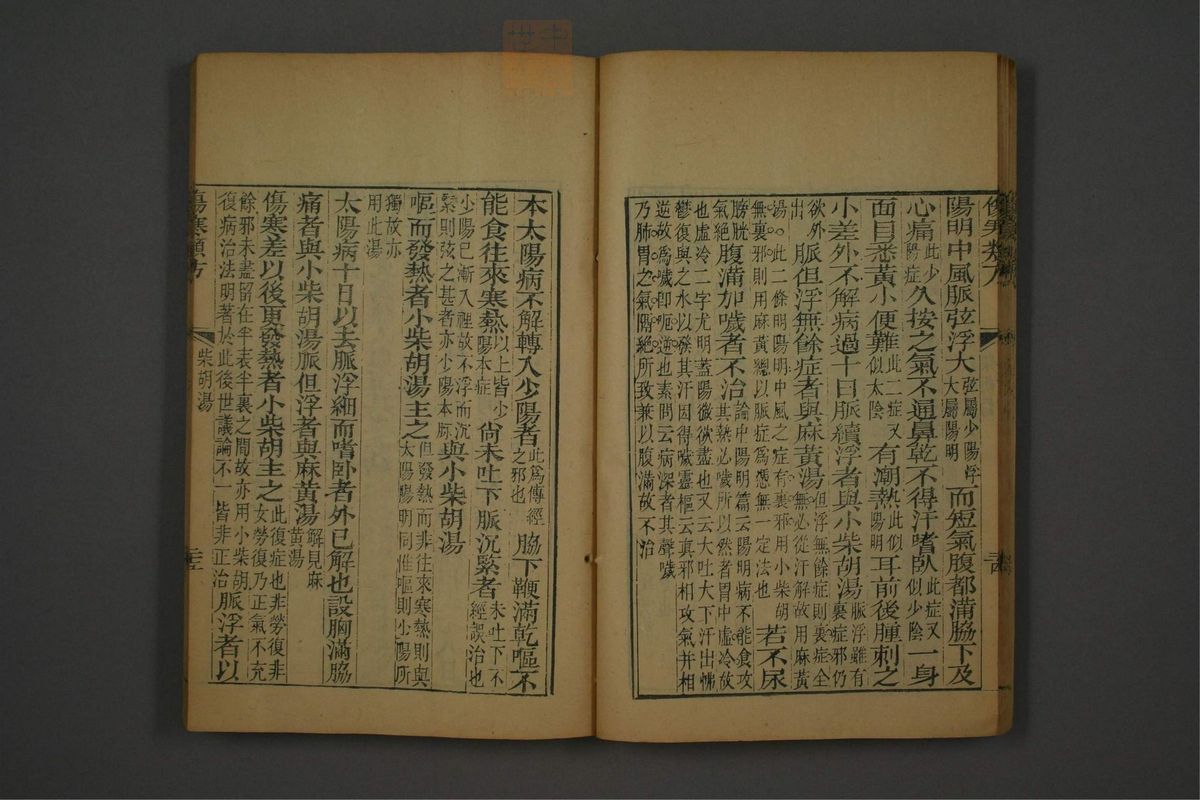 傷寒類方
陽明中風脈弦浮大弦屬少陽浮大屬陽明而短氣腹都滿脇下及
心痛此少陽症久按之氣不通鼻乾不得汗嗜臥此症又似少陰一身
面目悉黃小便難此二症又似太陰有潮熱此似陽明耳前後腫刺之
小差外不解病過十日脈續浮者與小柴胡湯脈雖有裏症邪仍
欲外出脈但浮無餘症者與麻黃湯但浮無餘症則裏症全無必從汗解故用麻黃
湯此二條明陽明中風之症有裏邪用小柴胡無裏邪則用麻黃總以脈症爲憑無一定法也若不尿
腹滿加噦者不治論中陽明篇云陽明病不能食攻其熱必噦所以然者胃中虛冷故
也虛冷二字尤明蓋陽微欲盡也又云大吐大下汗出怫
鬱復與之水以發其汗因得噦靈樞云眞邪相攻氣并相
逆故爲噦卽呃逆也素問云病深者其聲噦
乃肺胃之氣隔絕所致兼以腹滿故不治
本太陽病不解轉入少陽者此爲傳經之邪也脇下鞕滿乾嘔不
能食往來寒熱以上皆少陽本症尙未吐下脈沉緊者未吐下不經誤治也
少陽已漸入裡故不浮而沉緊則弦之甚者亦少陽本脈與小柴胡湯
嘔而發熱者小柴胡湯主之但發熱而非往來寒熱則與太陽陽明同惟嘔則少陽所
獨故亦用此湯
太陽病十日以去脈浮細而嗜臥者外已解也設胸滿脇
痛者與小柴胡湯脈但浮者與麻黃湯解見麻黃湯
傷寒差以後更發熱者小柴胡主之此復症也非勞復非女勞復乃正氣不充
餘邪未盡留在半表半裏之間故亦用小柴胡復病治法明著於此後世議論不一皆非正治脈浮者以
傷寒類方
柴胡湯